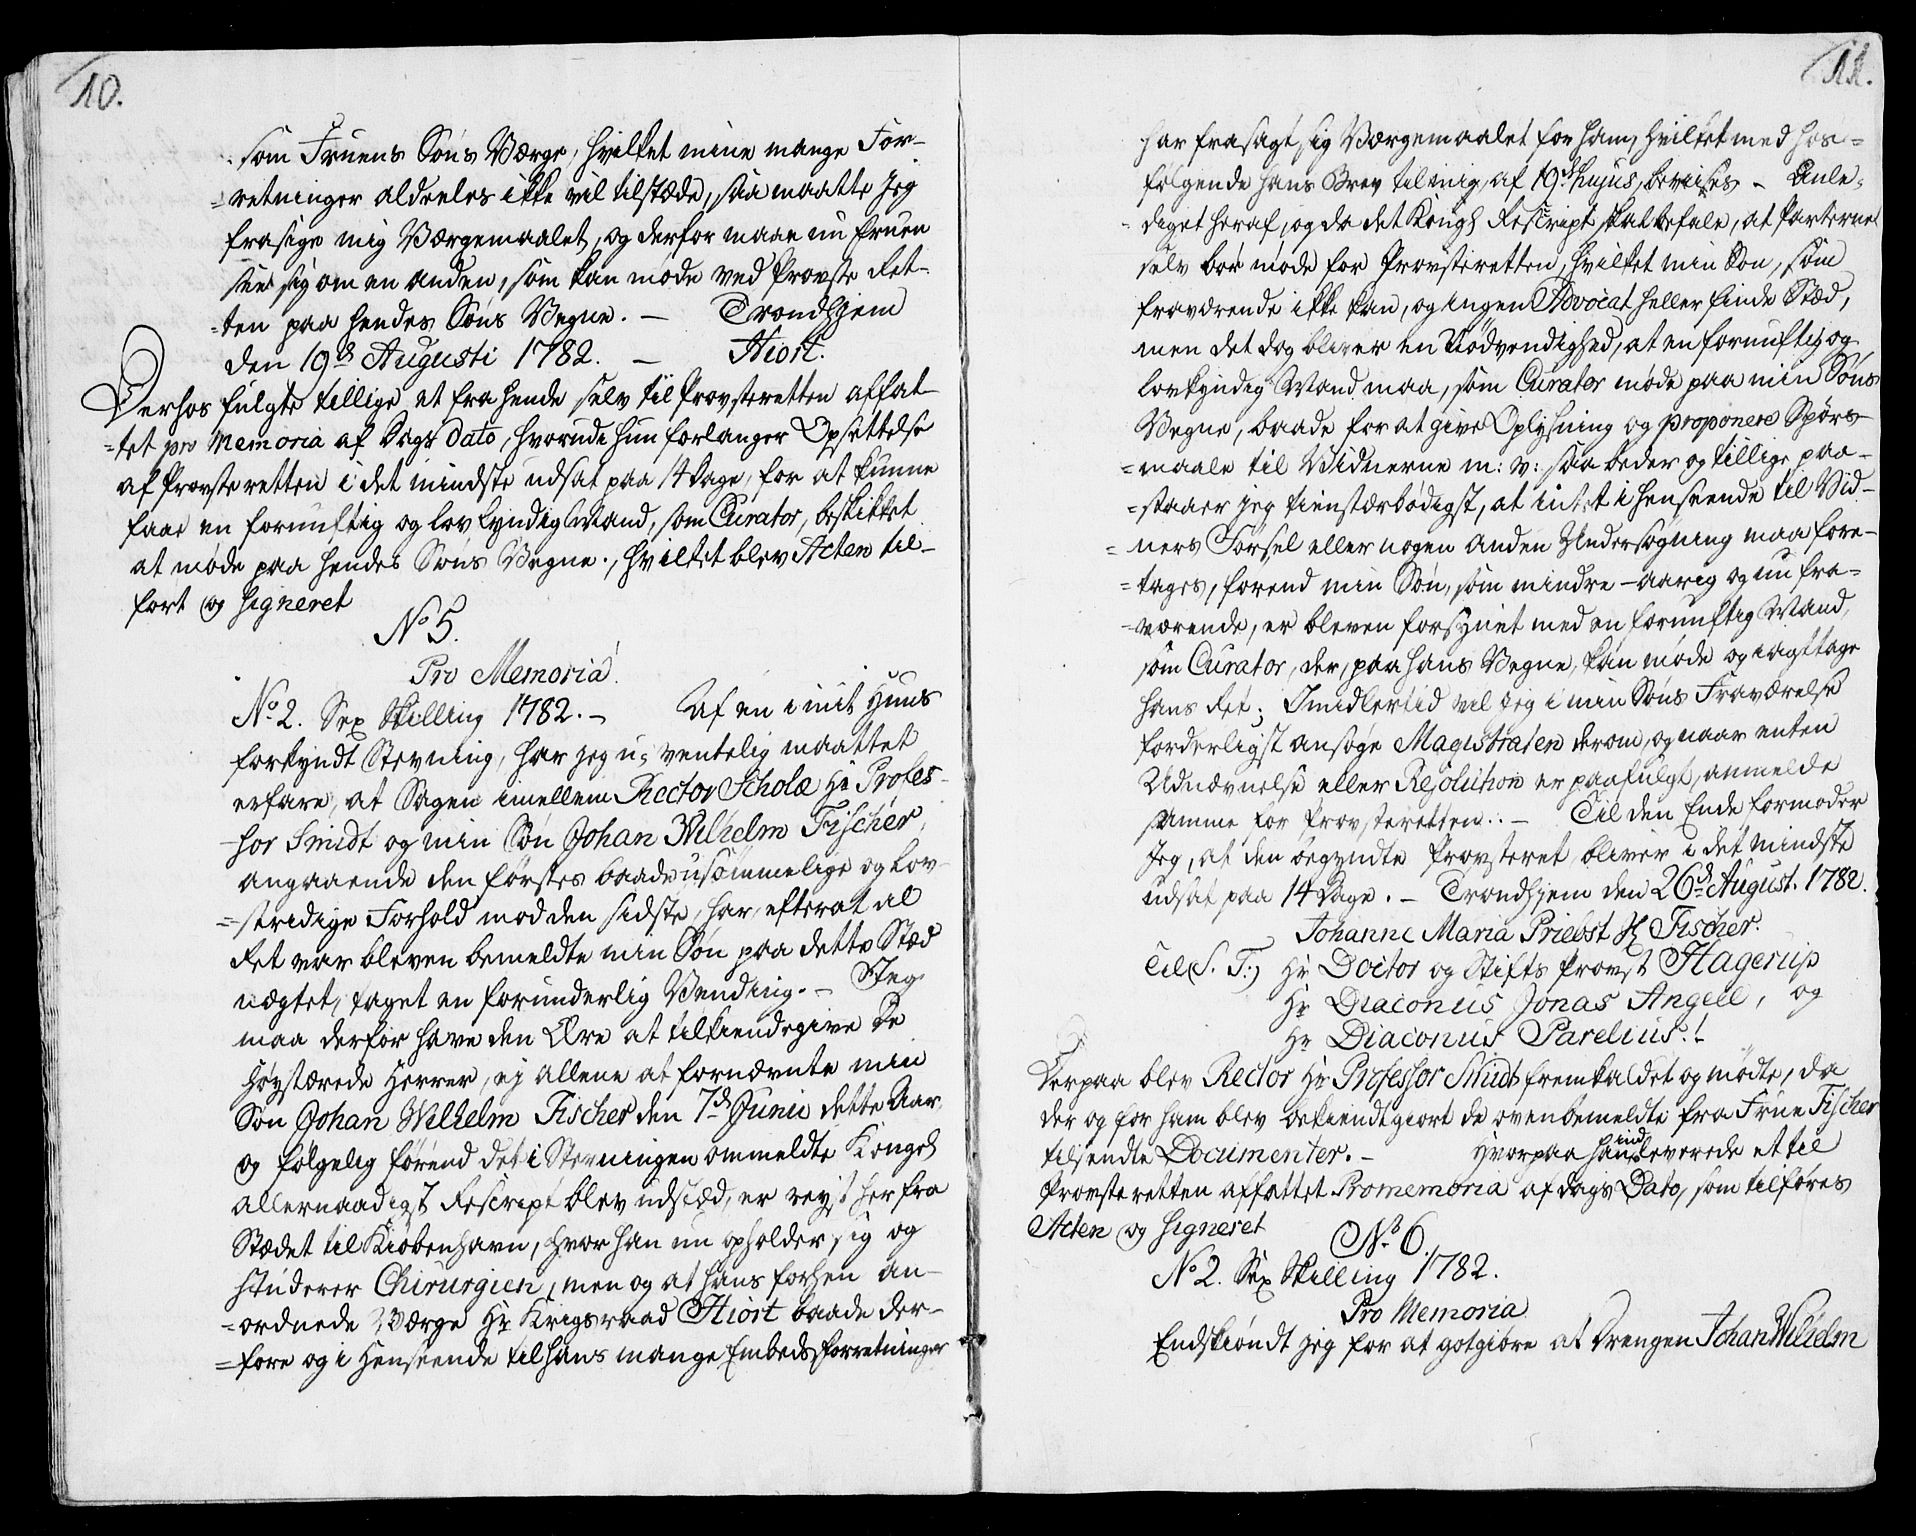 10.
som Fruens Søns Værge, hvilket mine mange For-
=retninger aldeeles ikke vil tilstæde, saa maatte jeg
frasige mig Værgemaalet, og derfor maae nu Fruen
see sig om en anden, som kan møde ved Provste Ret-
=ten paa hendes Søns Vegne. — Trondhjem
den 19de Augusti 1782. — Hiort.
Derhos fulgte tillige et fra hende selv til Provsteretten affat-
=tet pro Memoria af Dags Dato, hvorudi hun forlanger Opsættelse
af Provsteretten i det mindste udsat paa 14 Dage, for at kunne
faae en fornuftig og lovkyndig Mand, som Curator, beskikket
at møde paa hendes Søns Vegne., hvilket blev Acten til-
ført og signeret
No 5.
Pro Memoria.
No 2. Sex Skilling 1782. — Af en i mit Huus
forkyndt Stevning, har jeg u-ventelig maattet
erfare, at Sagen imellem Rector Scholæ Hr Profes-
sor Smidt og min Søn Johan Wilhelm Fischer,
angaaende den førstes baade usømmelige og lov-
=stridige Forhold mod den sidste, har, efter at al
Ret var bleven bemeldte min Søn paa dette Stæd
nægtet, taget en forunderlig Vending. — Jeg
maa derfor have den Ære at tilkiendegive De
Høystærede Herrer, ej allene at fornævnte min
Søn Johan Wilhelm Fischer den 7de Junii dette Aar,
og følgelig førend det i Stevningen ommeldte Kongel
allernaadigst Rescript blev udstæd, er reyst her fra
Stædet til Kiøbenhavn, hvor han nu opholder sig og
studerer Chirurgien, men og at hans forhen an-
=ordnede Værge Hr Krigsraad Hiort baade der-
=fore og i Henseende til hans mange Embedsforretninger
11.
har frasagt sig Værgemaalet for ham, hvilket med hos-
følgende hans Brev til mig, af 19de hujus, bevises — Anle-
diget heraf, og da det Kongl Rescript skal befale, at Parterne
selv bør møde for Provsteretten, hvilket min Søn, som
fraværende ikke kan, og ingen Advocat heller finde Stæd,
men det dog bliver en Nødvendighed, at en fornuftig og
lovkyndig Mand maa, som Curator møde paa min Søns
Vegne, baade for at give Oplysning og proponere Spørs-
=maale til Vidnerne m: v: saa beder og tillige paa-
=staaer jeg tienstærbødigst, at intet i Henseende til Vid-
=ners Førsel eller nogen anden Undersøgning maa fore-
=tages, førend min Søn, som mindre-aarig og nu fra-
=værende, er bleven forsynet med en fornuftig Mand,
som Curator, der, paa hans Vegne, kan møde og iagttage
hans Ret; Imidlertid vil jeg i min Søns Fraværelse
forderligst ansøge Magistraten derom, og naar enten
Udnævnelse eller Resolution er paafulgt, anmelde
samme for Provsteretten. — Til den Ende formoder
jeg, at den begyndte Provsteret bliver i det mindste
udsat paa 14 Dage. — Trondhjem den 26de August. 1782.
Johanne Maria Priebst Fischer.
Til (S. T:) Hr Doctor og Stifts Provst Hagerup
Hr Diaconus Jonas Angell, og
Hr Diaconus Parelius.
Derpaa blev Rector Hr Professor Smidt fremkaldet og mødte, da
der og for ham blev bekiendtgiort de ovenbemeldte fra Frue Fischer
tilsendte Documenter. — Hvorpaa han indleverede et til
Provsteretten affattet Promemoria af Dags Dato, som tilføres
Acten og signeret
No 6.
No 2. Sex Skilling 1782.
Pro Memoria
Endskiøndt jeg for at gotgiøre at Drengen Johan Wilhelm